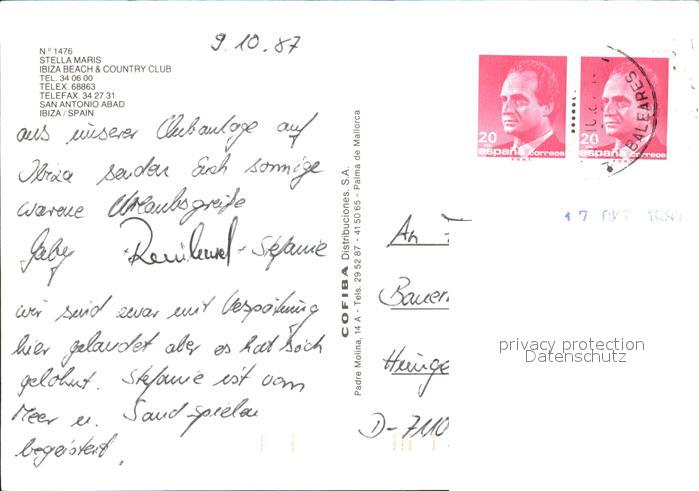 9.10.87
Nº 1476
STELLA MARIS
IBIZA BEACH & COUNTRY CLUB
TEL. 34 06 00
TELEX. 68863
TELEFAX. 34 27 31
SAN ANTONIO ABAD
IBIZA / SPAIN
aus unserer Clubanlage auf
Ibiza senden Euch sonnige
warme Urlaubsgrüße
Gaby - Reinhard - Stefanie
wir sind zwar mit Verspätung
hier gelandet aber es hat sich
gelohnt. Stefanie ist vom
Meer u. Sand-spielen
begeistert.
COFIBA Distribuciones, S.A.
Padre Molina, 14 A - Tels. 29 52 87 - 41 50 65 - Palma de Mallorca
20
españa correos
20
españa correos
BALEARES
17 OKT 1987
An
Bauer
D-7110
privacy protection
Datenschutz